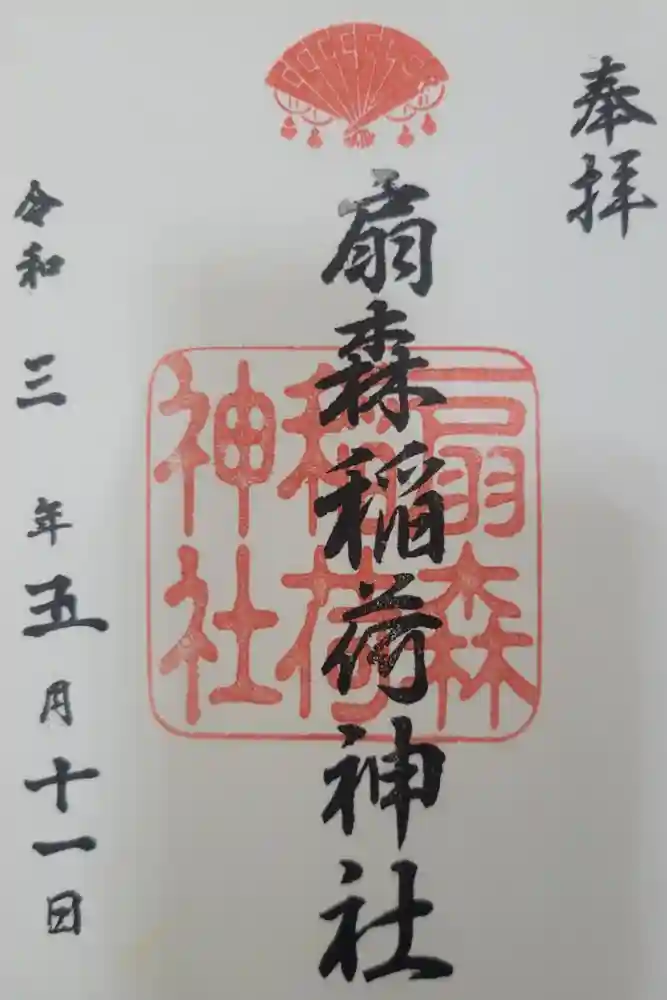 奉拝
扇森稲荷神社
扇森
稲荷
神社
令和三年五月十一日